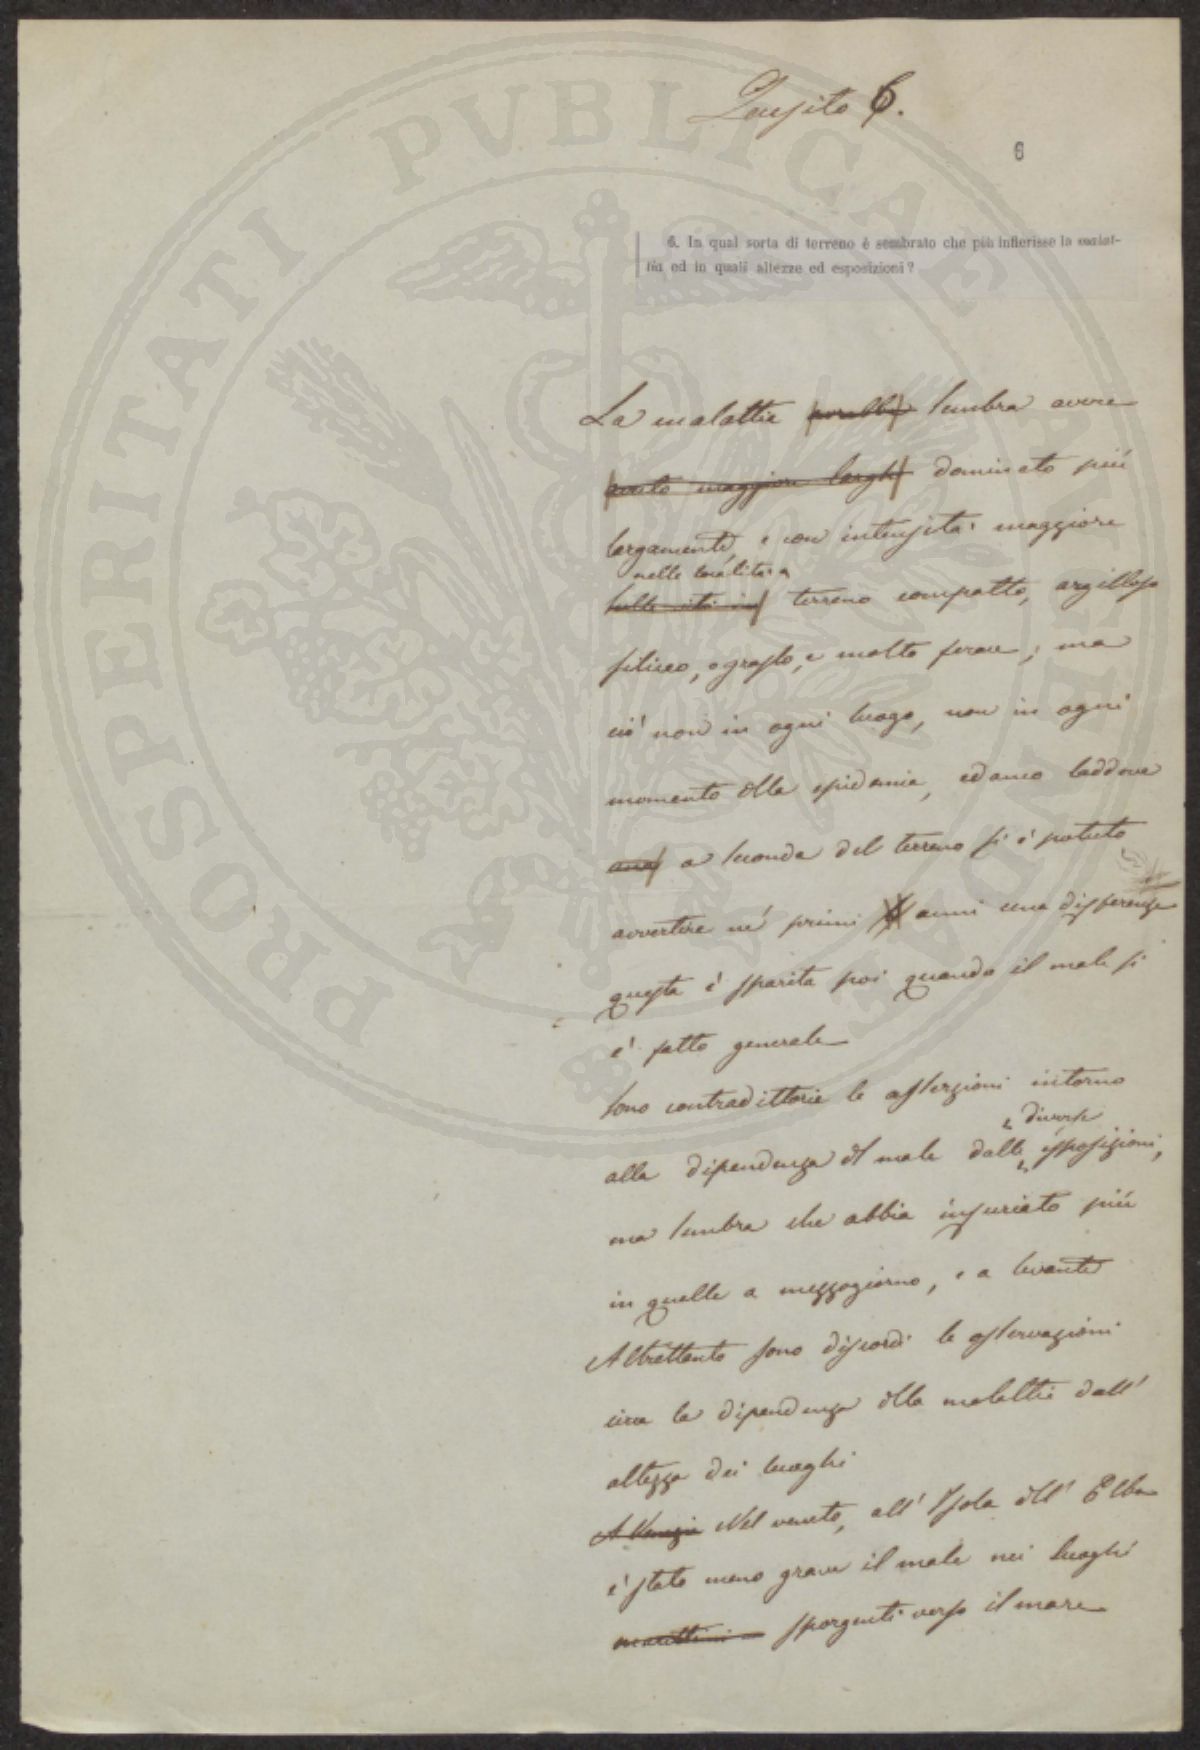 Quesito 6.
6
6. In qual sorta di terreno è sembrato che più infierisse la malat-
tia ed in quali altezze ed esposizioni?
La malattia sembra avere
avuto maggiore largh dominato più
largamente, e con intensità maggiore
nelle località a
sulle siti in terreno compatto, argilloso
siliceo, o grasso, e molto ferace; ma
ciò non in ogni luogo, non in ogni
momento della epidemia, ed anco laddove
a seconda del terreno si è potuto
avvertire ne' primi anni una differenza
questa è sparita poi quando il male si
è fatto generale
Sono contradittorie le asserzioni intorno
diverse
alla dipendenza del male dalle esposizioni,
ma sembra che abbia infuriato più
in quelle a mezzogiorno, e a levante
Altrettanto sono discordi le osservazioni
circa la dipendenza della malattia dall'
altezza dei luoghi
A Venezia Nel veneto, all' Isola dell' Elba
è stato meno grave il male nei luoghi
marittimi sporgenti verso il mare
PROSPERITATI PVBLICAE AVGENDAE